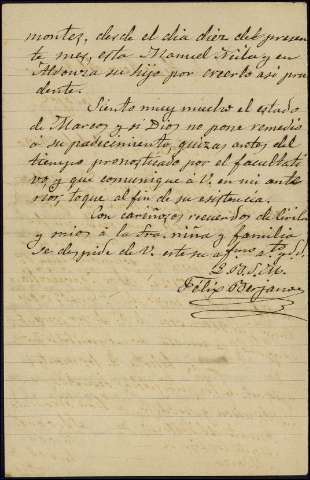 montes, desde el dia diez del presen
te mes, esta Manuel y en
su hijo por creerlo asi pru
dente.
Siento muy mucho el estado
de Marcos y si Dios no pone remedio
á su padecimiento, quizas antes del
tiempo pronosticado por el facultati
vo y que comuniqué á V. en mi ante
rior, toque al fin de su existencia.
Con cariñosos recuerdos de
y mios á la Sra. niña y familia
se despide de V. este su af.mo a. y S.
Q. B. S. M.
Félix Berjano